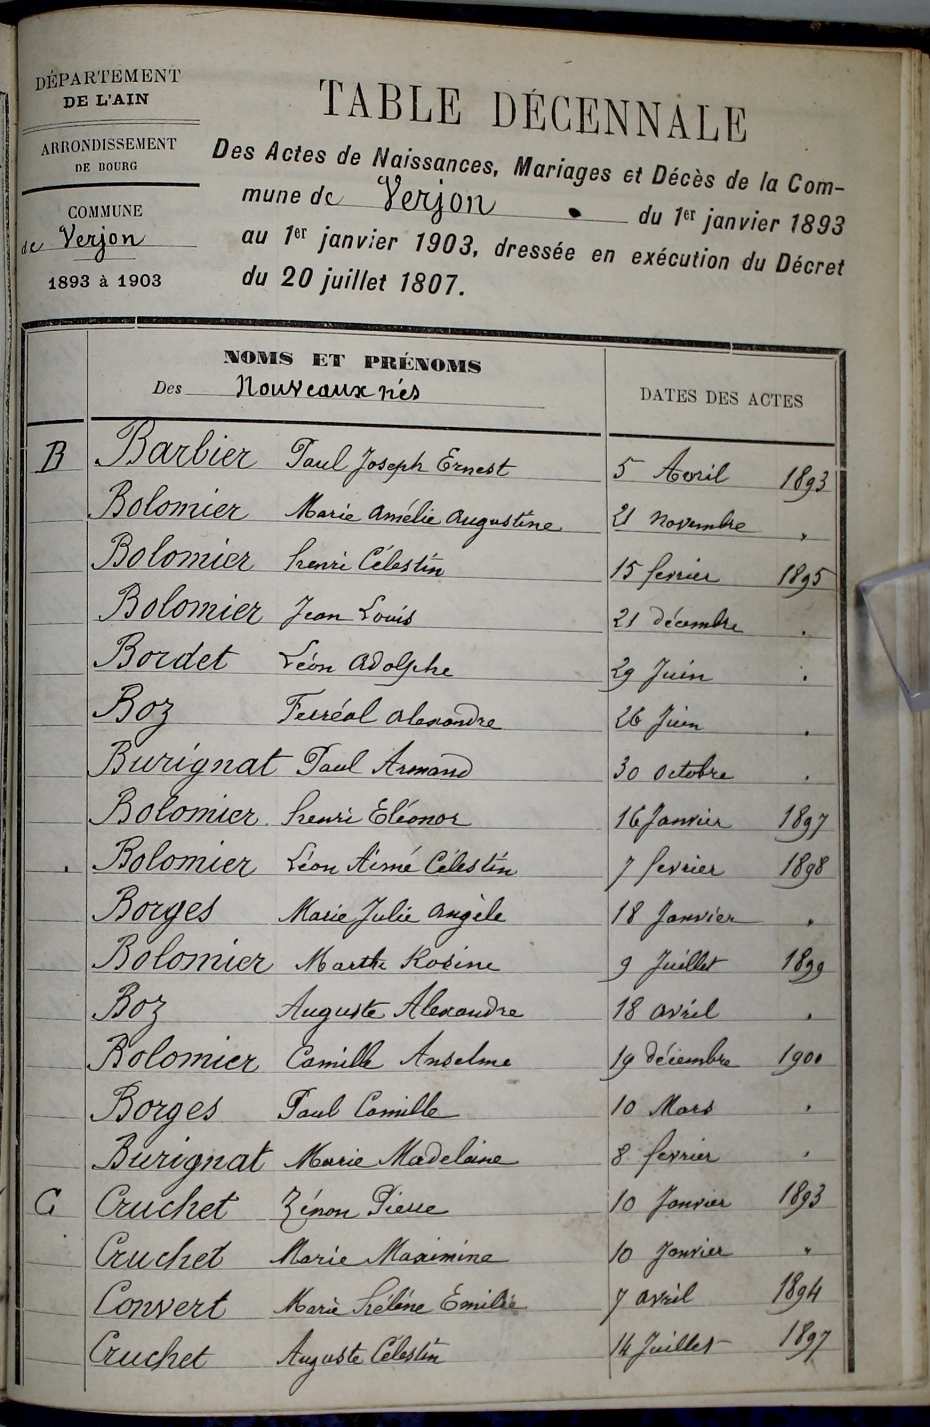 DÉPARTEMENT
DE L'AIN
ARRONDISSEMENT
DE BOURG
COMMUNE
de Verjon
1893 à 1903
TABLE DÉCENNALE
Des Actes de Naissances, Mariages et Décès de la Com-
mune de Verjon du 1er janvier 1893
au 1er janvier 1903, dressée en exécution du Décret
du 20 juillet 1807.
NOMS ET PRÉNOMS
Des Nouveaux nés
DATES DES ACTES
B Barbier Paul Joseph Ernest 5 Avril 1893
Bolomier Marie Amélie Augustine 21 novembre "
Bolomier henri Célestin 15 fevrier 1895
Bolomier Jean Louis 21 décembre "
Bordet Léon Adolphe 29 Juin "
Boz Ferréol alexandre 26 Juin "
Burignat Paul Armand 30 octobre "
Bolomier henri Eléonor 16 Janvier 1897
Bolomier Léon Aimé Célestin 7 fevrier 1898
Borges Marie Julie Angèle 18 Janvier "
Bolomier Marthe Rosine 9 Juillet 1899
Boz Auguste Alexandre 18 avril "
Bolomier Camille Anselme 19 décembre 1900
Borges Paul Camille 10 Mars "
Burignat Marie Madelaine 8 fevrier "
C Cruchet Zénon Pierre 10 Janvier 1893
Cruchet Marie Maximine 10 Janvier "
Convert Marie héléne Emilie 7 avril 1894
Cruchet Auguste Célestin 14 Juillet 1897